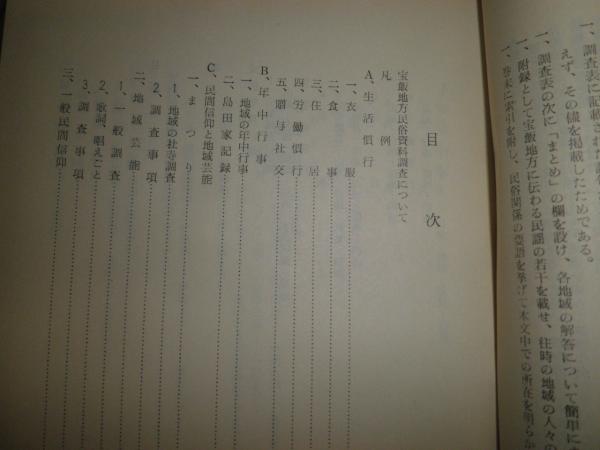 一、調査表に記載された
えず、その儘を掲載したためである。
一、調査表の次に「まとめ」の欄を設け、各地域の解答について簡単に
一、附録として宝飯地方に伝わる民謡の若干を載せ、往時の地域の人々の
一、巻末に索引を附し、民俗関係の要語を挙げて本文中での所在を明らか
目次
宝飯地方民俗資料調査について
凡例
A、生活慣行
一、衣服
二、食事
三、住居
四、労働慣行
五、贈与社交
B、年中行事
一、地域の年中行事
二、島田家記録
C、民間信仰と地域芸能
一、まつり
1、地域の社寺調査
2、調査事項
二、地域芸能
1、一般調査
2、歌詞、唱えごと
3、調査事項
三、一般民間信仰